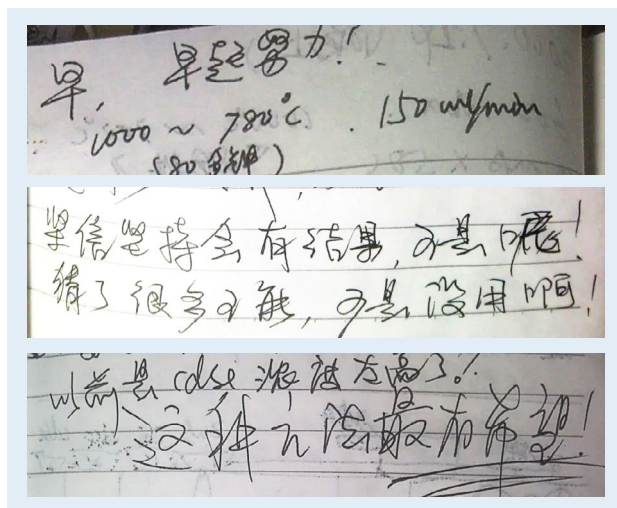 早，早起努力！
1000 ~ 780℃ . 150 ml/min
(80分钟)
坚信坚持会有结果，可是呢！
猜了很多可能，可是没用啊！
以前是 cdse 浓度太高了！
这种方法最有希望！